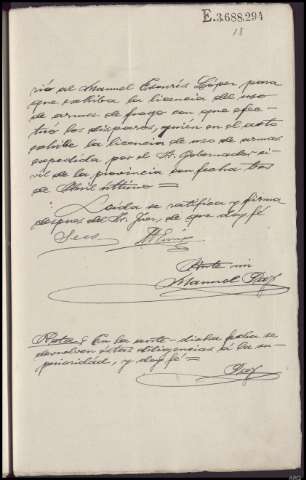 E.3.688.294
18
rió al Manuel Esmorís López para
que exhiba la licencia del uso
de armas de fuego con que efec-
tuó los disparos, quién en el acto
exhibe la licencia de uso de armas
expedida por el Sr. Gobernador ci-
vil de la provincia con fecha tres
de Abril último =
Leida se ratifica y firma
despues del Sr. Juez, de que doy fé
Ante mi
Manuel Paz
Nota = En la ante-dicha fecha se
devuelven éstas diligencias á la su-
perioridad, y doy fé =
Paz